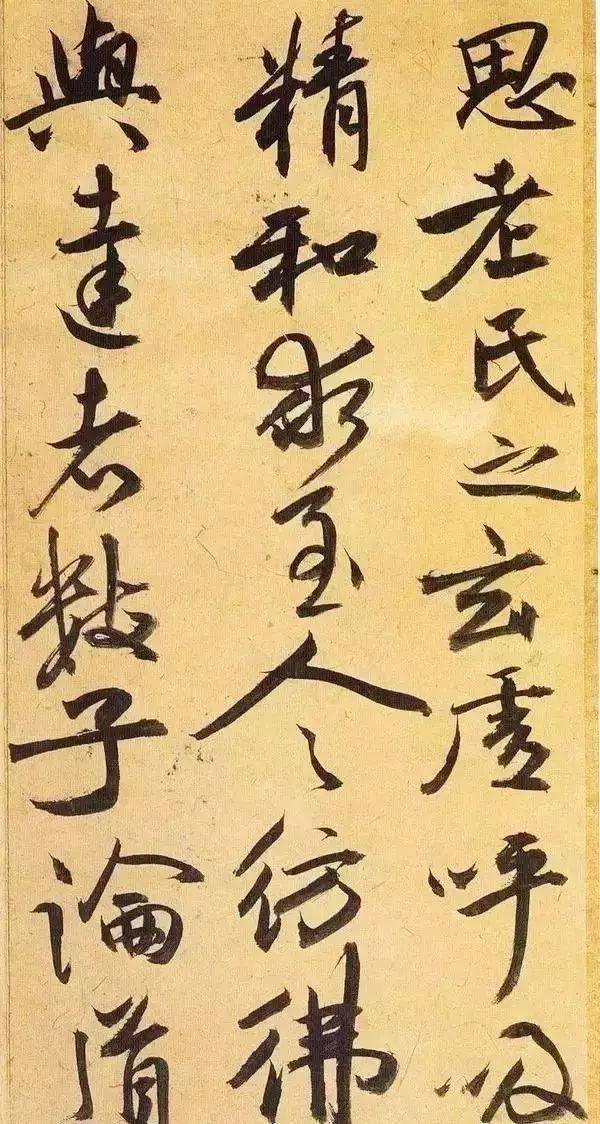 思老氏之玄虛呼吸
精和求至人之彷彿
與達者數子論道